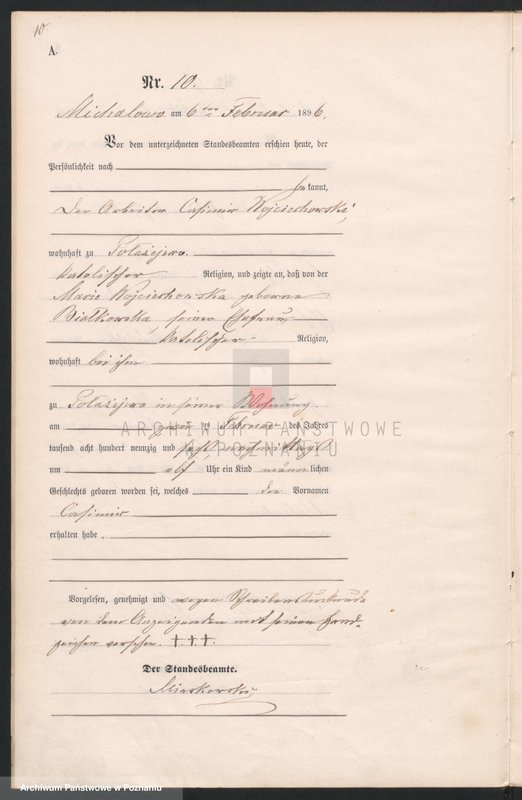 10
A.
Nr. 10.
Michalowo am 6ten Februar 1896.
Vor dem unterzeichneten Standesbeamten erschien heute, der
Persönlichkeit nach
kannt,
Der Arbeiter Casimir Wojciechowski,
wohnhaft zu Polazejewo
katolischer Religion, und zeigte an, daß von der
Marie Wojciechowska geborene
Bialkowska seiner Ehefrau
katolischer Religion,
wohnhaft bei ihm
zu Polazejewo in seiner Wohnung
am zwei ten Februar des Jahres
tausend acht hundert neunzig und sechs, vormittags
um elf Uhr ein Kind männlichen
Geschlechts geboren worden sei, welches den Vornamen
Casimir
erhalten habe.
Vorgelesen, genehmigt und wegen Schreibensunkunde
von dem Anzeigenden mit seinen Hand-
zeichen versehen. †.†.†.
Der Standesbeamte.
Miaskowski
ARCHIWUM PAŃSTWOWE
W POZNANIU
Archiwum Państwowe w Poznaniu